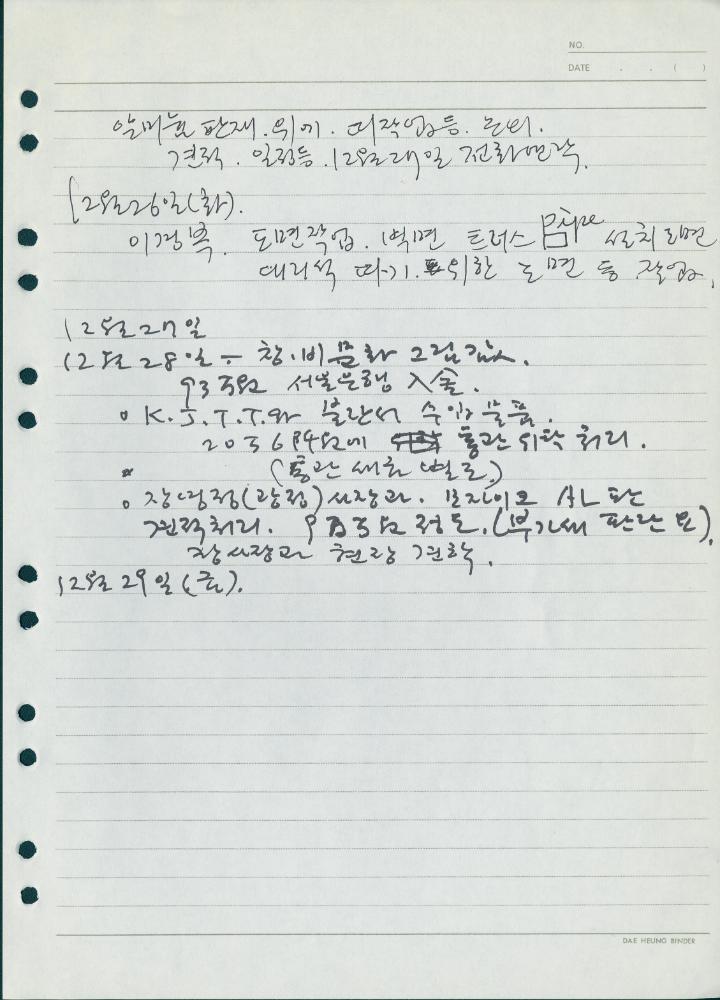 NO.
DATE . . ( )
알미늄 판재. 위에. 떠작업등. 논의.
견적. 일정등. 12월27일 전화연락.
12월26일(화).
이경복. 도면작업. 벽면 트러스 Pipe 설치도면
대리석 따기. 위한 도면 등 작업.
12월27일
12월28일 - 창.비문화 그림값.
93만원 서울은행 入金.
o K.J.T.T.와 불란서 수입 물품.
통관 위탁 처리.
(통관 세료 별도)
o 장영정(광정)사장과. 모자이크 AL 판
견적처리. 정도. (부가세 판단 요).
장사장과 현장 견학.
12월 29일(금).
DAE HEUNG BINDER